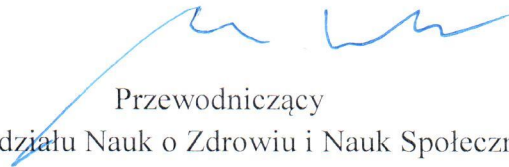 Przewodniczący
działu Nauk o Zdrowiu i Nauk Społeczn